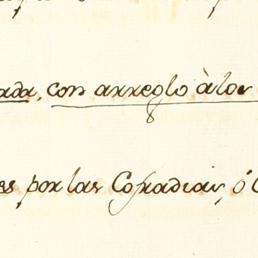 ada, con arreglo à los
es, por las Cofradias, ó